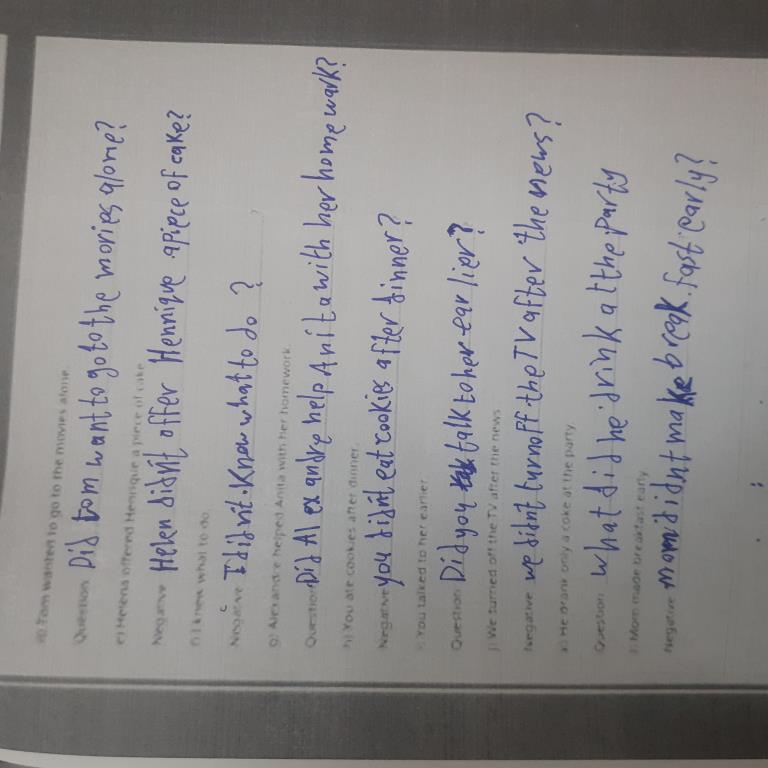 d) Tom wanted to go to the movies alone.
Question Did tom want to go to the movies alome?
e) Helena offered Henrique a piece of cake
Negative Helen didn't offer Henrique apiece of cake?
f) I knew what to do.
Negative I didn't Know what to do ?
g) Alexandre helped Anita with her homework.
Question Did Alexandre help Anita with her home work?
h) You ate cookies after dinner.
Negative you didn't eat cookies after dinner?
i) You talked to her earlier.
Question Did you talk to her ear lier?
j) We turned off the TV after the news
Negative we didnt turnoff the TV after the news?
k) He drank only a coke at the party.
Question what did he drink at the party
l) Mom made breakfast early.
Negative mom didnt make break.fast early?